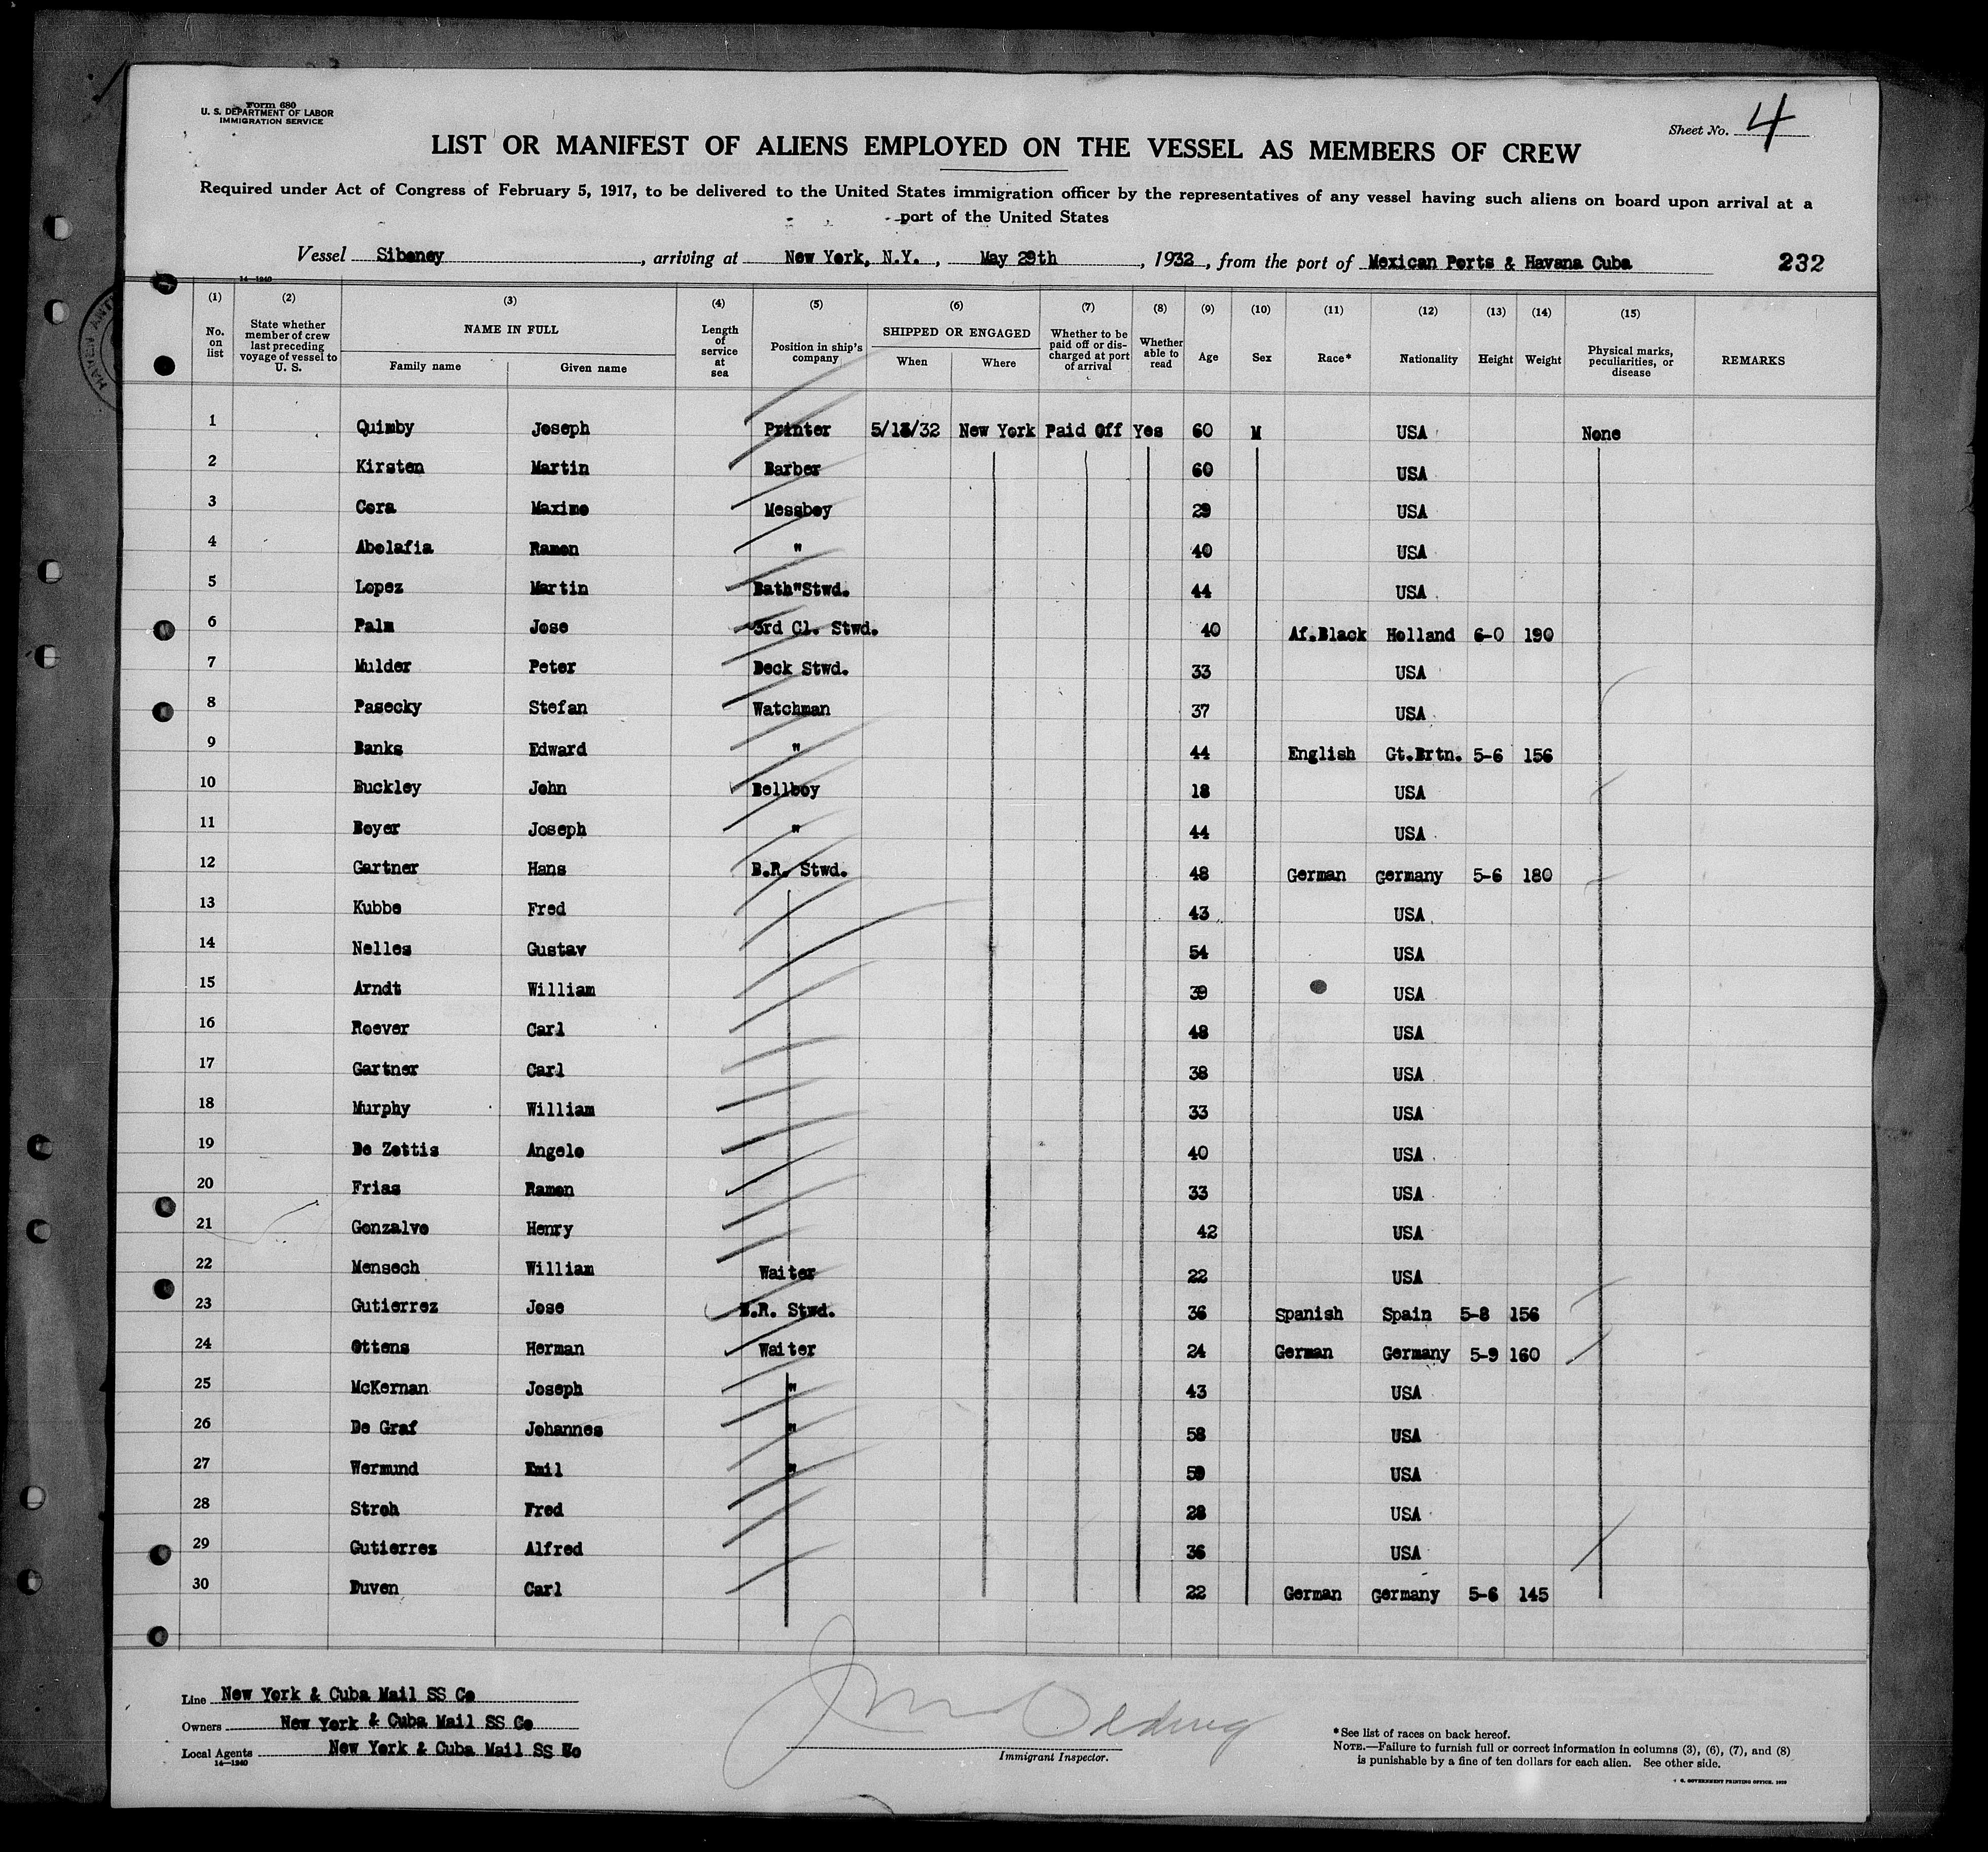 Form 680
U. S. DEPARTMENT OF LABOR
IMMIGRATION SERVICE
Sheet No. 4
LIST OR MANIFEST OF ALIENS EMPLOYED ON THE VESSEL AS MEMBERS OF CREW
Required under Act of Congress of February 5, 1917, to be delivered to the United States immigration officer by the representatives of any vessel having such aliens on board upon arrival at a
port of the United States
Vessel Siboney, arriving at New York, N.Y., May 29th, 1932, from the port of Mexican Ports & Havana Cuba 232
14-1240
(1) (2) (3) (4) (5) (6) (7) (8) (9) (10) (11) (12) (13) (14) (15)
No. on list State whether member of crew last preceding voyage of vessel to U. S. NAME IN FULL Family name Given name Length of service at sea Position in ship's company SHIPPED OR ENGAGED When Where Whether to be paid off or discharged at port of arrival Whether able to read Age Sex Race* Nationality Height Weight Physical marks, peculiarities, or disease REMARKS
1 Quimby Joseph Printer 5/13/32 New York Paid Off Yes 60 M USA None
2 Kirsten Martin Barber 60 USA
3 Cora Maximo Messboy 29 USA
4 Abolafia Ramon " 40 USA
5 Lopez Martin Bath"Stwd. 44 USA
6 Palm Jose 3rd Cl. Stwd. 40 Af.Black Holland 6-0 190
7 Mulder Peter Deck Stwd. 33 USA
8 Pasecky Stefan Watchman 37 USA
9 Banks Edward " 44 English Gt.Brtn. 5-6 156
10 Buckley John Bellboy 18 USA
11 Boyer Joseph " 44 USA
12 Gartner Hans B.R. Stwd. 48 German Germany 5-6 180
13 Kubbe Fred 43 USA
14 Nelles Gustav 54 USA
15 Arndt William 39 USA
16 Roever Carl 48 USA
17 Gartner Carl 38 USA
18 Murphy William 33 USA
19 De Zottis Angelo 40 USA
20 Frias Ramon 33 USA
21 Gonzalvo Henry 42 USA
22 Mensech William Waiter 22 USA
23 Gutierrez Jose B.R. Stwd. 36 Spanish Spain 5-8 156
24 Ottens Herman Waiter 24 German Germany 5-9 160
25 McKernan Joseph " 43 USA
26 De Graf Johannes " 58 USA
27 Wermund Emil " 59 USA
28 Stroh Fred 28 USA
29 Gutierres Alfred 36 USA
30 Duven Carl 22 German Germany 5-6 145
Line New York & Cuba Mail SS Co
Owners New York & Cuba Mail SS Co
Local Agents New York & Cuba Mail SS Co
14-1240
Immigrant Inspector.
*See list of races on back hereof.
NOTE.—Failure to furnish full or correct information in columns (3), (6), (7), and (8)
is punishable by a fine of ten dollars for each alien. See other side.
GOVERNMENT PRINTING OFFICE.